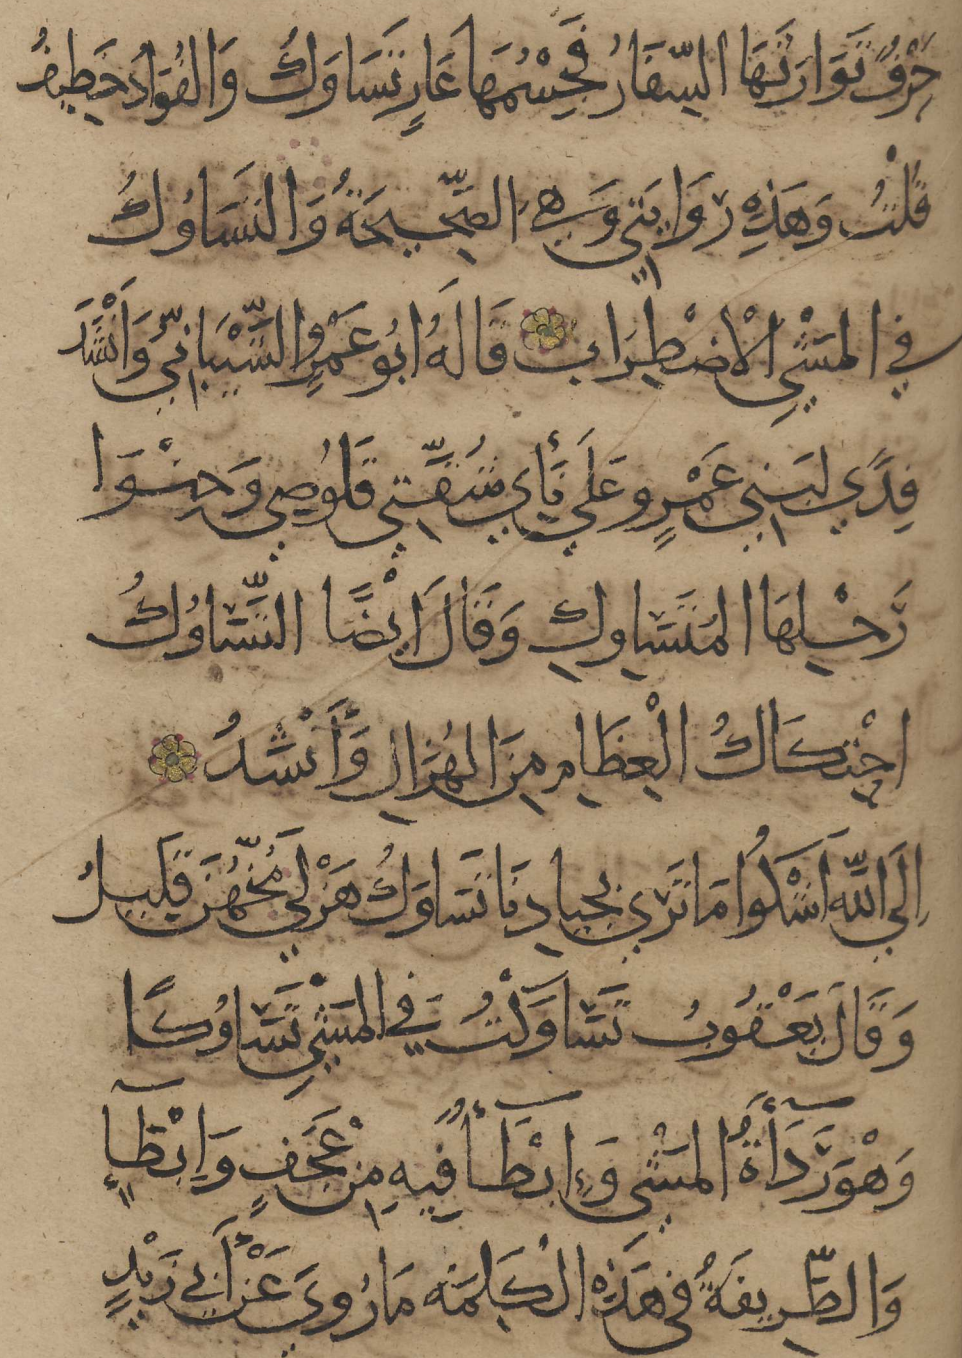 حَرْفٌ تَوَارَثَهَا السِّفَارُ فَجِسْمُهَا عَارٍ تَسَاوَكُ وَالفُؤَادُ خَطِيفُ
قُلْتُ وَهَذِهِ رِوَايَتِي وَهِيَ الصَّحِيحَةُ وَالتَسَاوُكُ
فِي المَشْيِ الْاضْطِرَابُ قَالَهُ ابُو عَمْرٍو الشَّيْبَانِيُّ وَانْشَدَ
فِدًي لِبَنِي عَمْرٍو عَلَي نَأْيِ شُقَّتِي قَلُوصِي وَحِنْوَا
رَحْلِهَا المُتَسَاوِكِ وَقَالَ ايْضًا التَّسَاوُكُ
احْتِكَاكُ الْعِظَامِ مِنَ الهُزَالِ وَأَنْشَدُ
اِلَي اللَّهِ اَشْكُوا مَا تَرَي بِجِيادِنَا تَسَاوَكُ هَزْلَي مُخُّهُنَّ قَلِيلُ
وَقَالَ يَعْقُوبُ تَسَاوَكْتُ فِي المَشْيِ تَسَاوُكًا
وَهْوَ رَدَآءَةُ المَشْيِ وَاِبْطَآءٌ فِيهِ مِنْ عَجَفٍ وَاِبْطَآءٍ
وَالطَّرِيفَةُ فِي هَذِهِ الْكَلِمَةِ مَا رُوِيَ عَنْ أَبِي زَيْدٍ